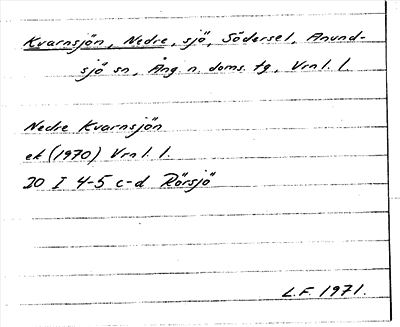 Kvarnsjön, Nedre, sjö, Södersel, Anund-
sjö sn, Ång. n. doms. tg, Vrnl. l.
Nedre Kvarnsjön
ek (1970) Vrnl. l.
20 I 4-5 c-d Rörsjö
L.F. 1971.